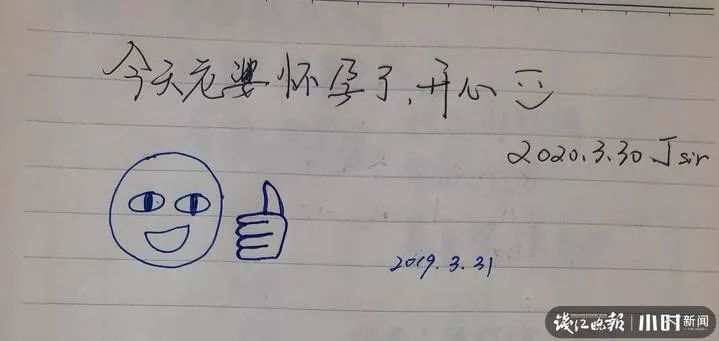 今天老婆怀孕了,开心
2020.3.30 J sir
2019.3.31
钱江晚报 小时新闻